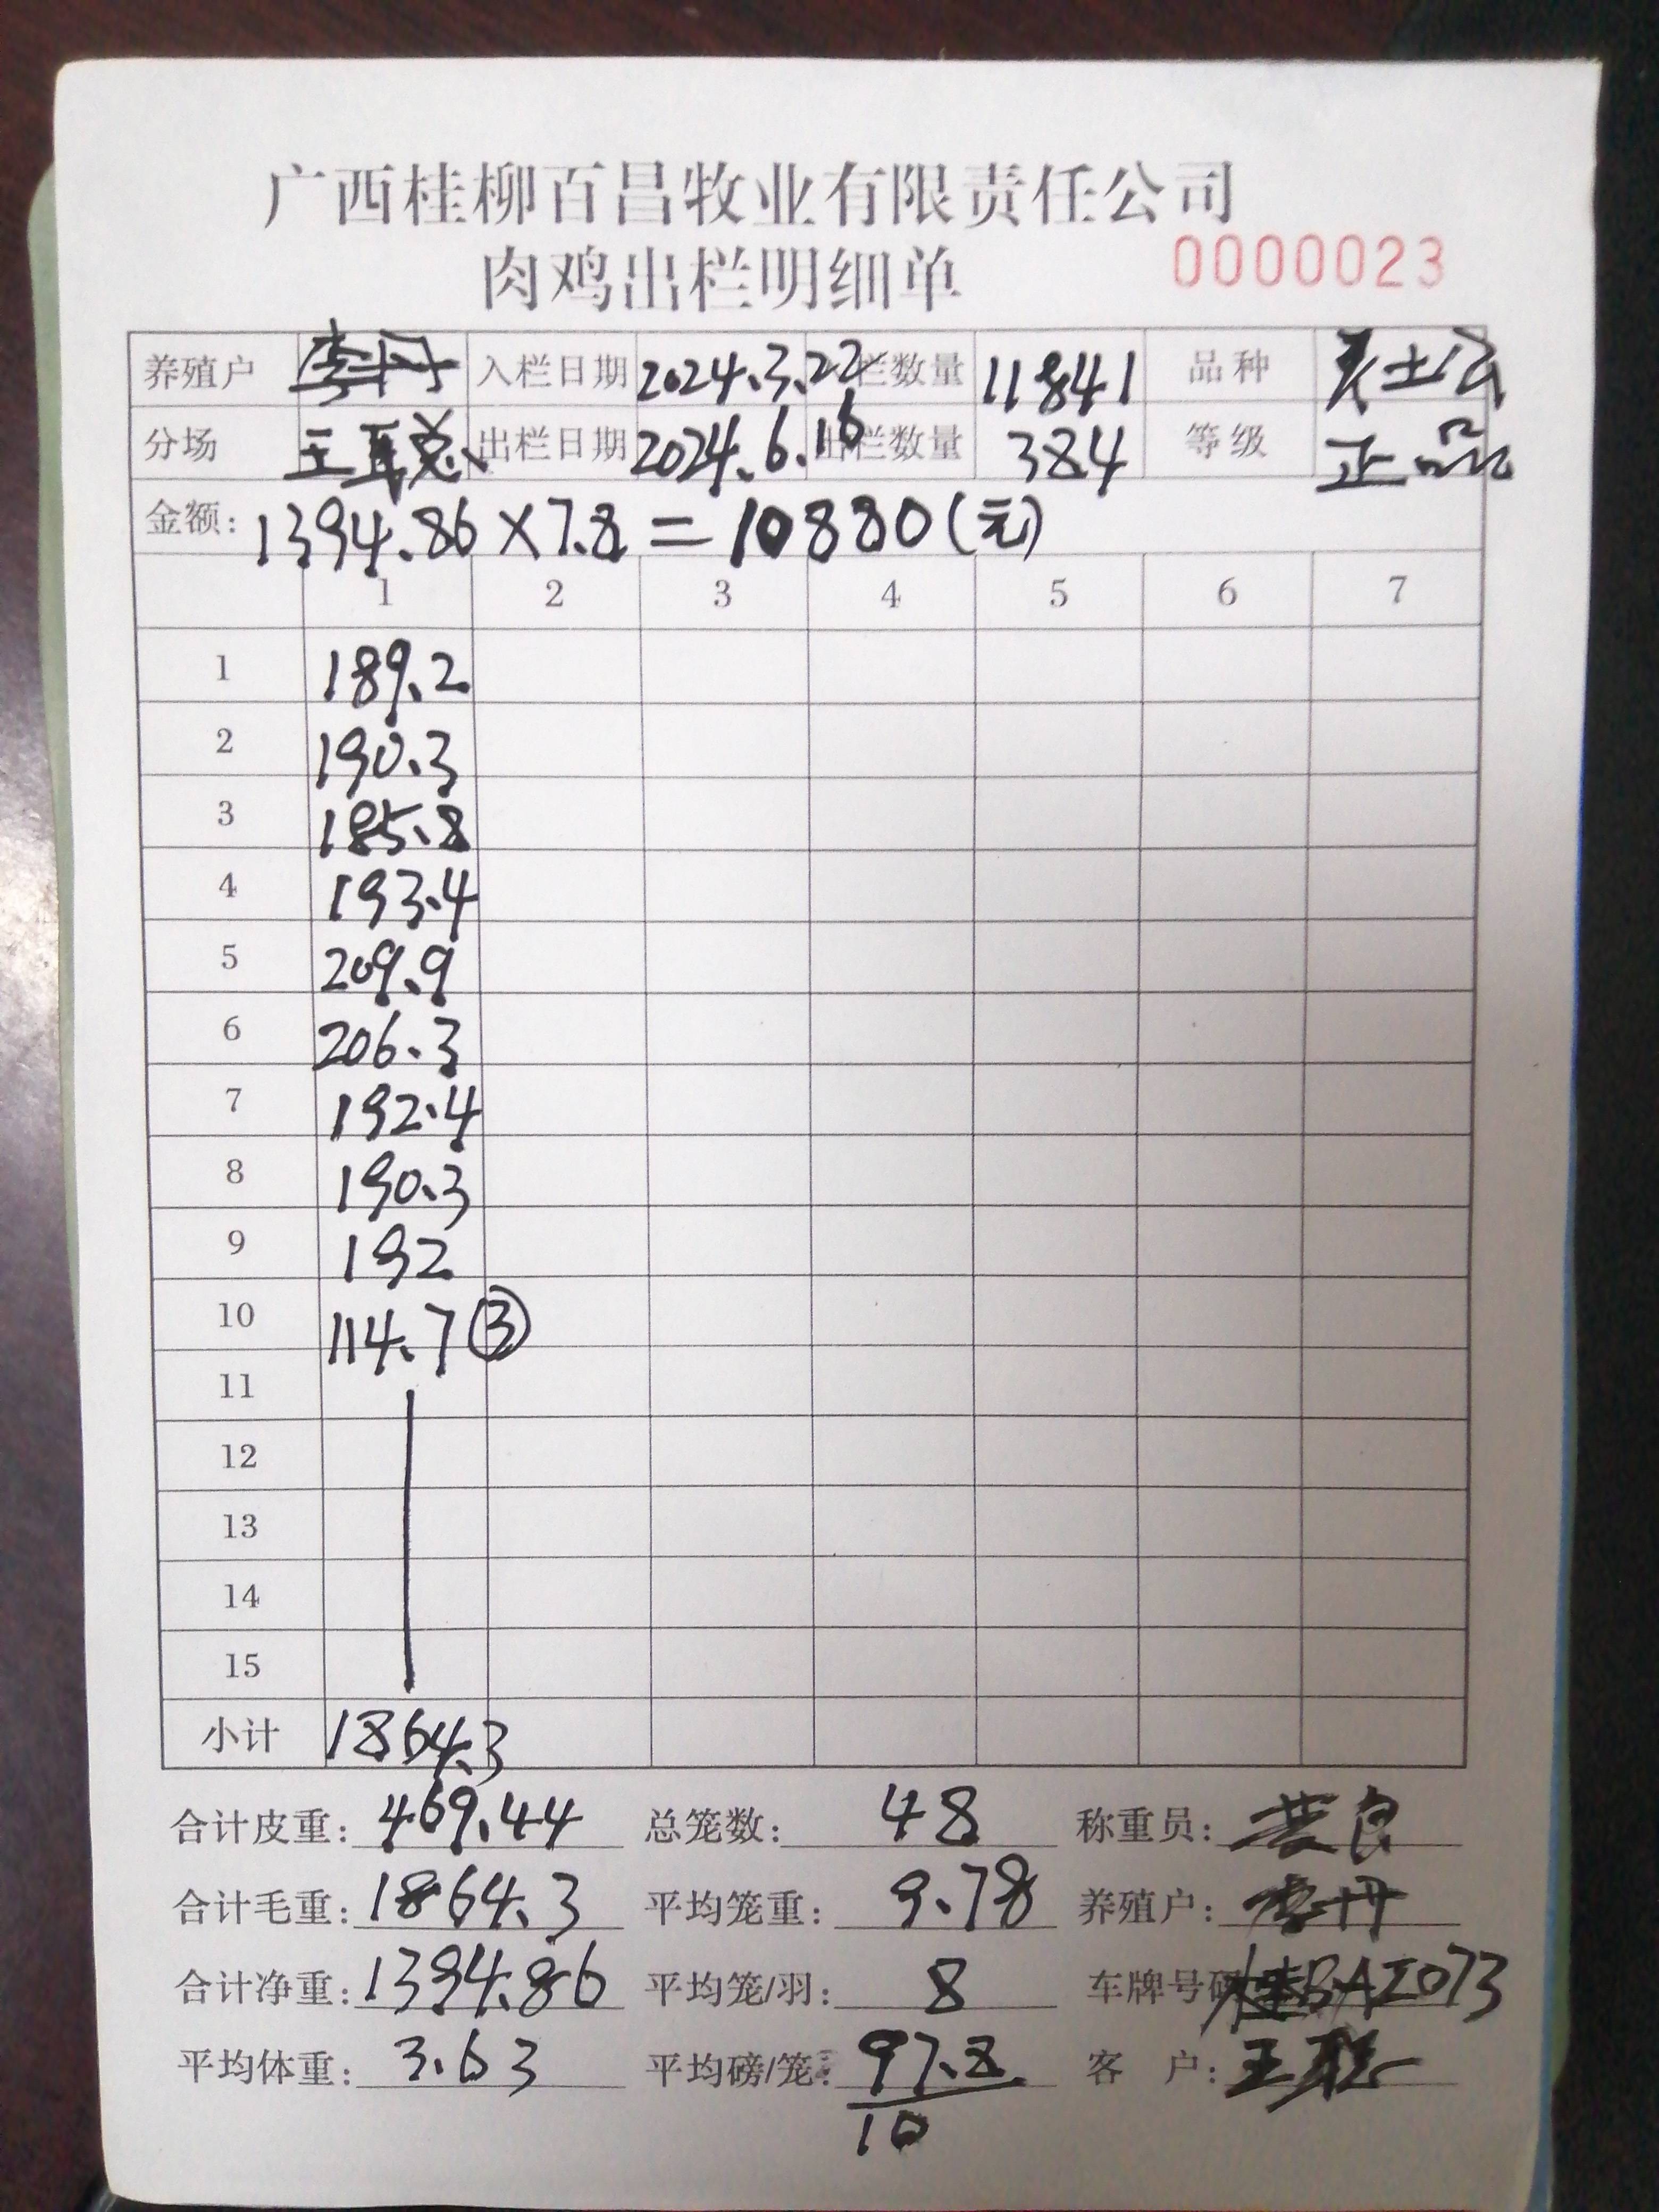 广西桂柳百昌牧业有限责任公司
肉鸡出栏明细单 0000023
养殖户 李丹 入栏日期 2024.3.22 栏数量 11841 品种 土
分场 王 出栏日期 2024.6.16 出栏数量 384 等级 正品
金额: 1394.86×7.8=10880(元)
1 2 3 4 5 6 7
1 189.2
2 190.3
3 185.8
4 193.4
5 209.9
6 206.3
7 192.4
8 190.3
9 192
10 114.7 ③
11
12
13
14
15
小计 1864.3
合计皮重: 469.44 总笼数: 48 称重员: 良
合计毛重: 1864.3 平均笼重: 9.78 养殖户: 李丹
合计净重: 1394.86 平均笼/羽: 8 车牌号码 桂BAZ073
平均体重: 3.63 平均磅/笼: 97.8 客户: 王
10